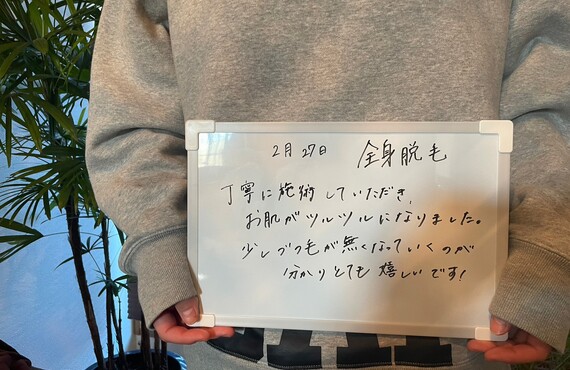 2月27日 全身脱毛
丁寧に施術していただき、
お肌がツルツルになりました。
少しづつ毛が無くなっていくのが
分かりとても嬉しいです!